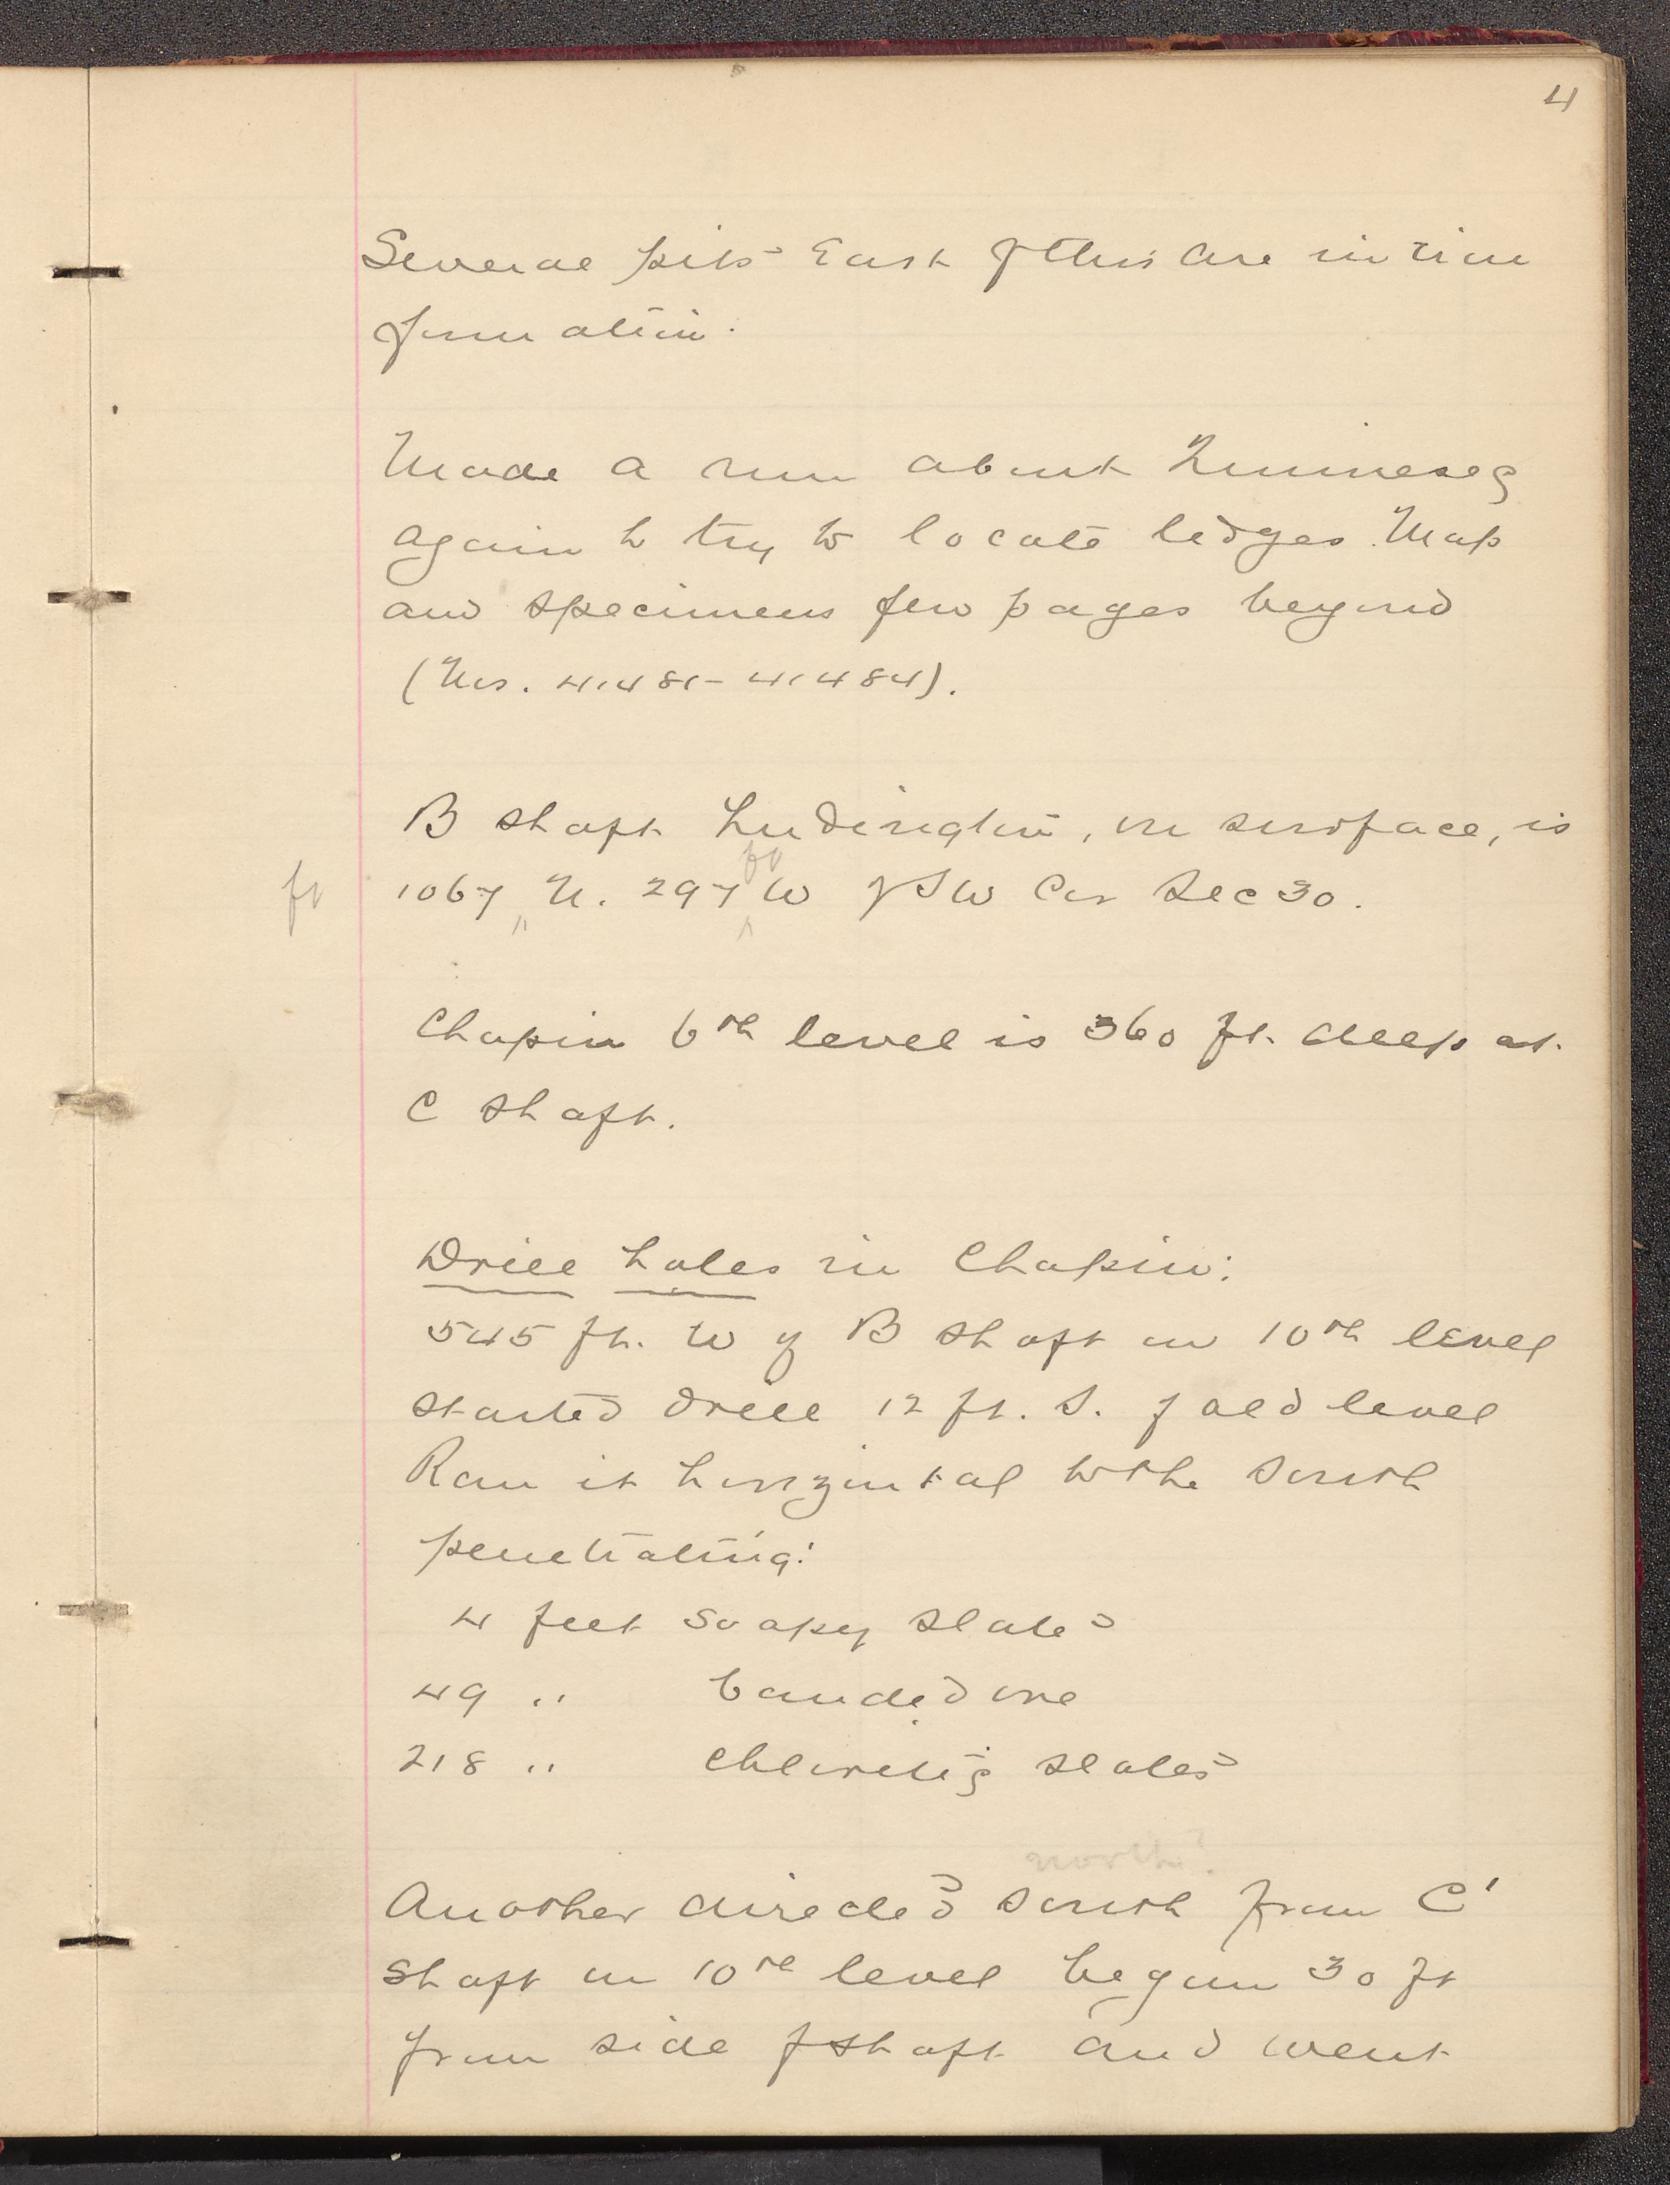 4
Several pits East of this are in iron
formation.
Made a run about Quinnesec
again to try to locate ledges. Map
and specimens few pages beyond
(Nos. 41481-41484).
B shaft Ludington, on surface, is
ft 1067 ^ N. 297 ^ ft W of SW Cor Sec 30.
Chapin 6th level is 360 ft. deep at
C shaft.
Drill holes in Chapin:
545 ft. W of B shaft on 10th level
started drill 12 ft. S. of old level
Ran it horizontal to the south
penetrating:
4 feet soapy slates
49 " banded ore
218 " chloritic slates
north?
Another directed south from C'
shaft on 10th level began 30 ft
from side of shaft and went